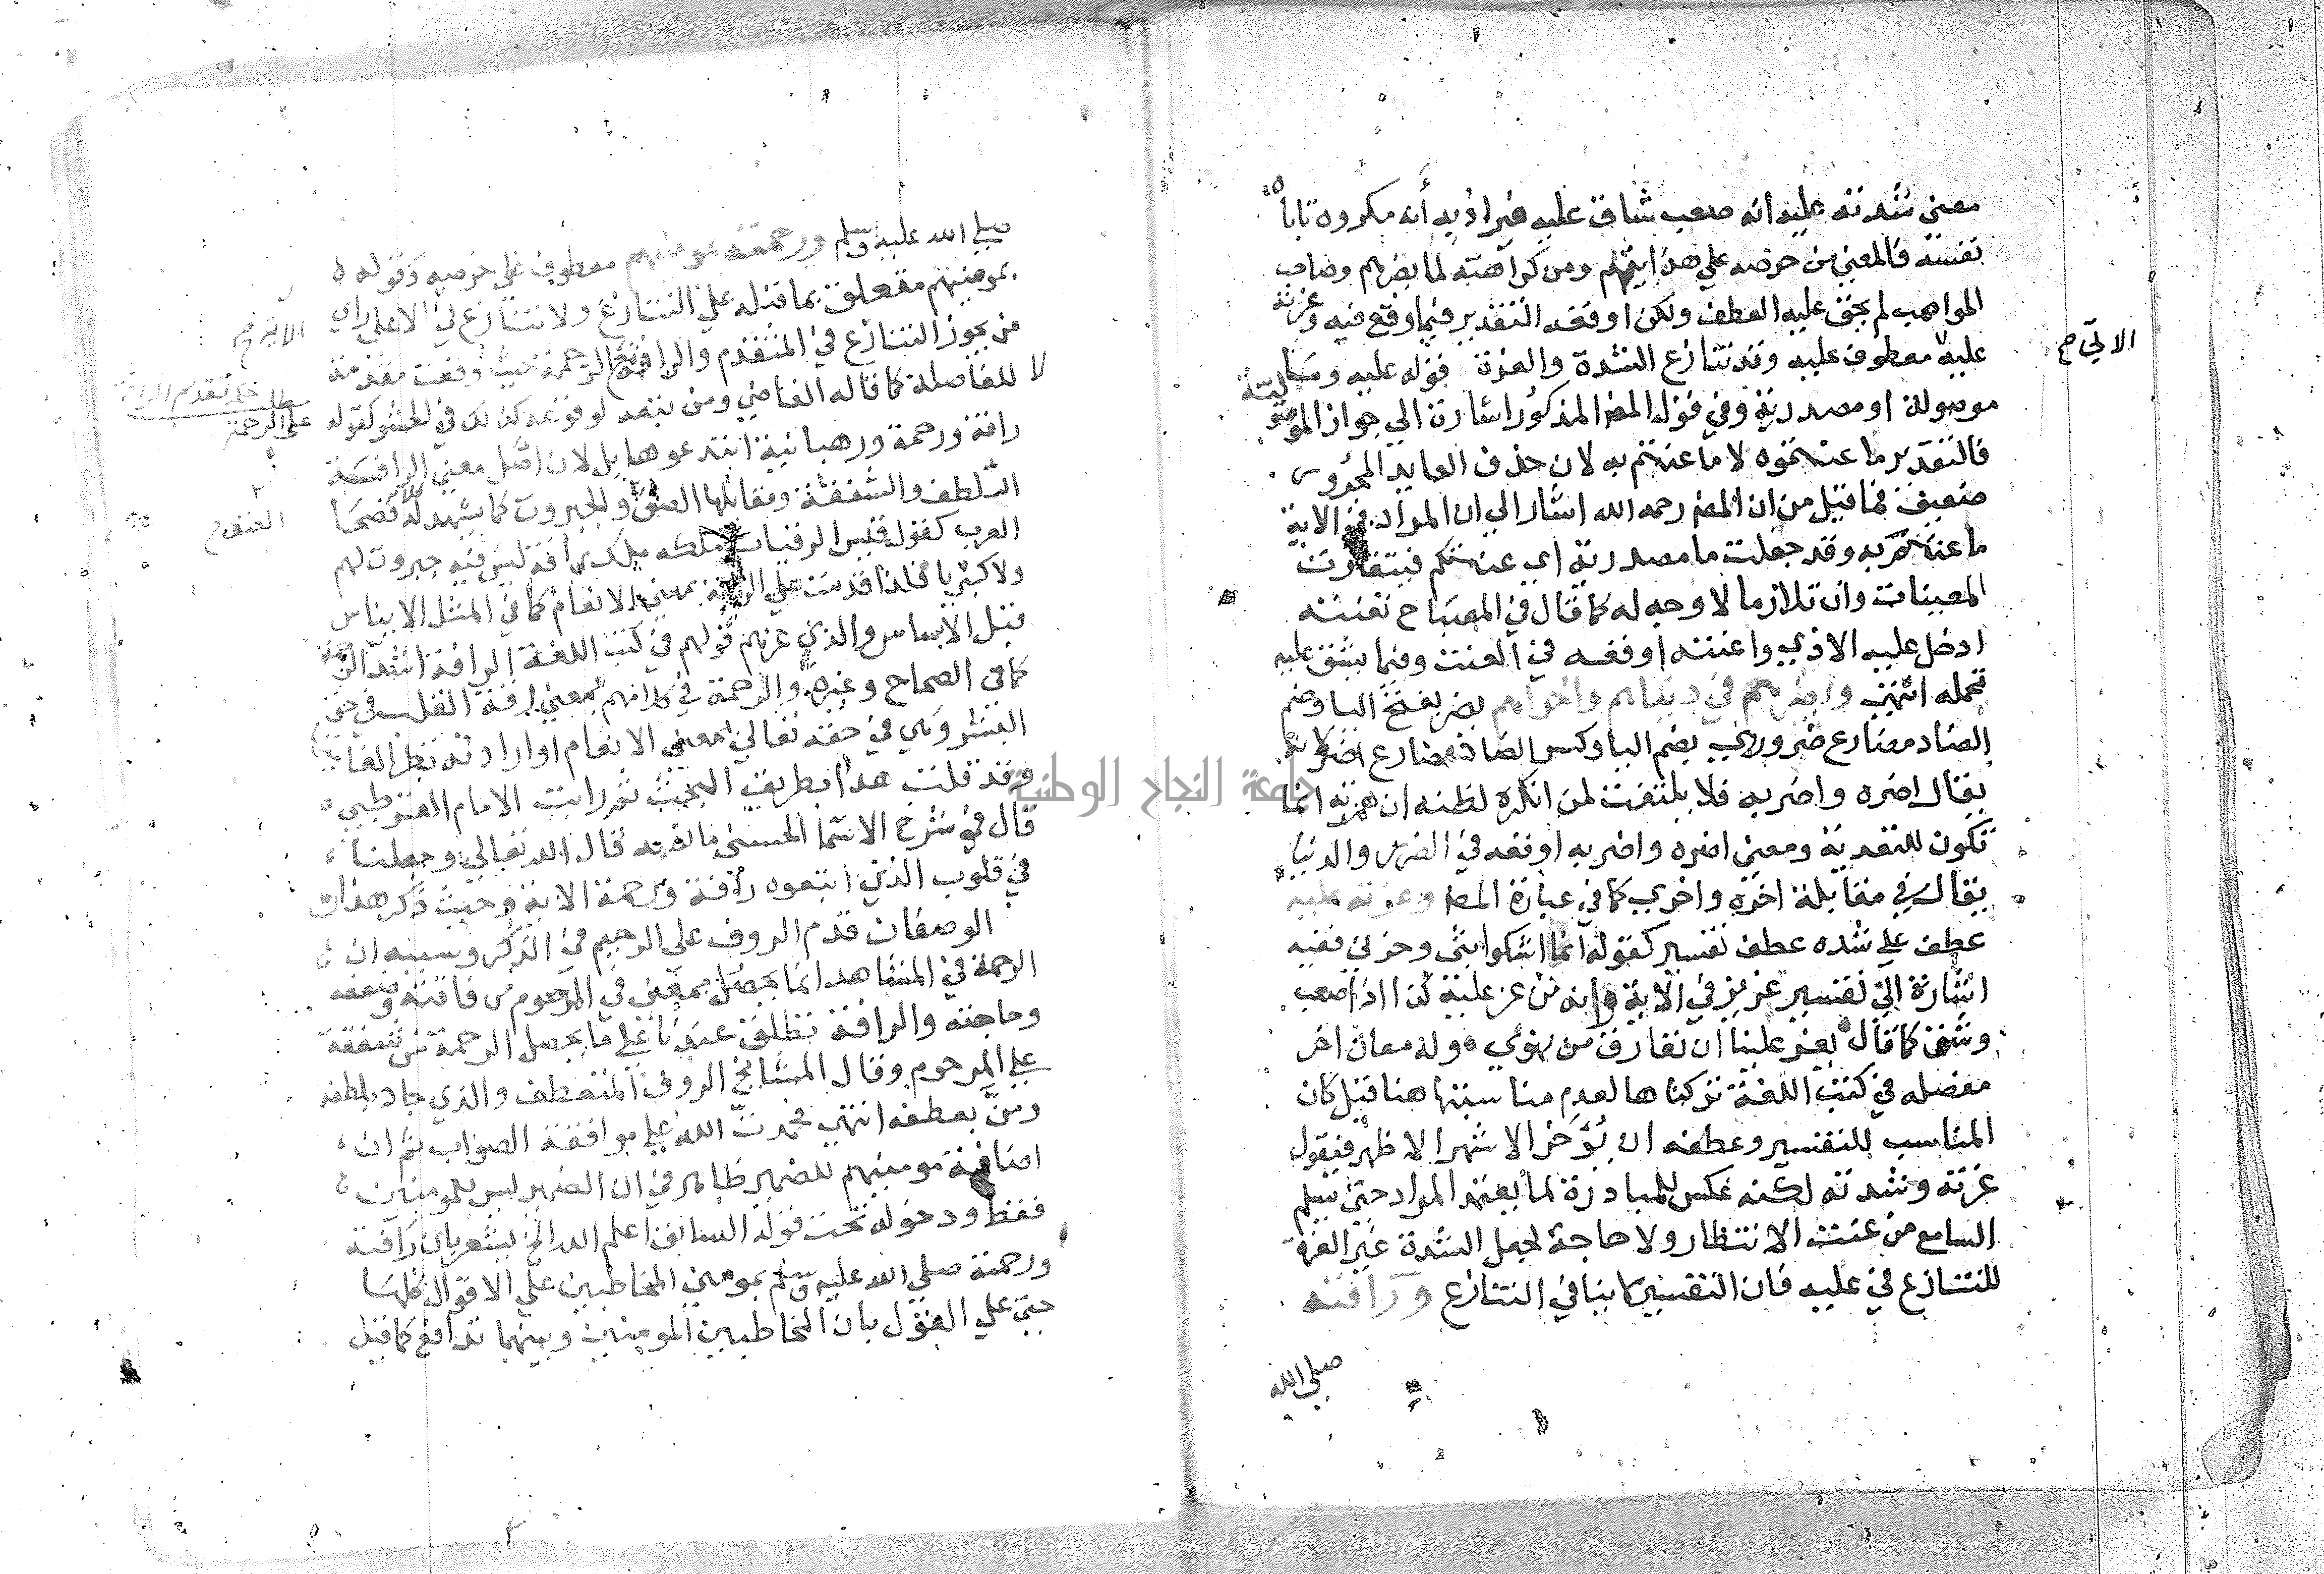 معني شدته عليه انه صعب شاق عليه فيراد به أنه مكروه تاباه
نفسه فالمعني من حرصه علي هدايتهم ومن كراهته لما يضرهم وصاحب
المواهب لم يخف عليه العطف ولكن اوقعه التقدير فيما وقع فيه وعزته
عليه معطوف عليه وقد تنازع الشدة والعزة قوله عليه وما
موصولة او مصدرية وفي قوله المص المذكور اشارة الي جواز
الاتي صح
فالتقدير ما عنتموه لا ما عنتم به لان حذف العايد المجرور
ضعيف فما قيل من ان المص رحمه الله اشار الي ان المراد في الاية
ما عنتم به وقد جعلت ما مصدرية اي عنتكم فيتقارب
المعنيان وان تلازما لا وجه له كما قال في المصباح تعنته
ادخل عليه الاذي واعنته اوقعه في العنت وفيما يشق عليه
تحمله انتهي ويضرهم في دنياهم واخراهم يضر بفتح اليا وضم
الضاد مضارع ضر وروي بضم اليا وكسر الضاد مضارع اضر
يقال اضره واضر به فلا يلتفت لمن انكره لظنه ان همزته انما
تكون للتعدية ومعني اضره واضر به اوقعه في الضرر والدنيا
يقال في مقابلة اخره واخري كما في عبارة المص وعزته عليه
عطف علي شده عطف تفسير كقوله انما اشكوا بثي وحزني ففيه
اشارة الي تفسير عزيز في الاية وانه من عز عليه كذا اذا صعب
وشق كما قال يعز علينا ان نفارق من نهوي وله معان اخر
مفصله في كتب اللغة تركناها لعدم مناسبتها هنا قيل كان
المناسب للتفسير وعطفه ان يؤخر الاشهر الاظهر فيقول
عزته وشدته لكنه عكس للمبادرة لما يفيد المراد حتي يسلم
السامع من عنت الانتظار ولا حاجة لجعل الشدة غير العزة
للتنازع في عليه فان التفسير لا ينافي التنازع ورافته
صلي الله
صلي الله عليه وسلم ورحمته بمومنيهم معطوف علي حرصه وقوله
بمومنيهم متعلق بما قبله علي التنازع ولا تنازع في الا علي راي
من يجوز التنازع في المتقدم والرافة مع الرحمة حيث وقعت مقدمة
لا للفاصلة كما قاله القاضي ومن بعد لوقوعه كذلك في الحشو كقوله
علي الرحمة
رافة ورحمة ورهبانية ابتدعوها بل لان اصل معني الرافة
التلطف والشفقة ومقابلها العنف والجبروت كما يشهد له فصحا
العنف صح
العرب كقول قيس الرقيات ملكه ملك رافة ليس فيه جبروت لهم
ولا كبريا فلذا قدمت علي الرحمة بمعني الانعام كما في المثل الايناس
قبل الابساس والذي غرهم قولهم في كتب اللغة الرافة اشد الرحمة
كما في الصحاح وغيره والرحمة في كلامهم بمعني رقة القلب في حق
البشر وهي في حقه تعالي بمعني الانعام او ارادته نظرا
وقد قلت هذا بطريق البحث ثم رايت الامام القرطبي
قال في شرح الاسما الحسني ما نصه قال الله تعالي وجعلنا
في قلوب الذين اتبعوه رافة ورحمة الاية وحيث ذكر هذان
الوصفان قدم الروف علي الرحيم في الذكر وسببه ان
الرحمة في المشاهد انما تحصل بمعني في المرحوم من فاقته وضعفه
وحاجته والرافة تطلق عندنا علي ما يحصل الرحمة من شفقة
علي المرحوم وقال المشايخ الروف المتعطف والذي جاد بلطفه
ومنّ بعطفه انتهي فحمدت الله علي موافقة الصواب ثم ان
اضافة مومنيهم للضمير ظاهر في ان الضمير ليس للمومنين
فقط ودخوله تحت قوله السابق اعلم الله الخ يشعر بان رافته
ورحمته صلي الله عليه وسلم بمومني المخاطبين علي الاقوال كلها
حتي علي القول بان المخاطبين المومنين وبينهما تدافع كما قيل
جامعة النجاح الوطنية